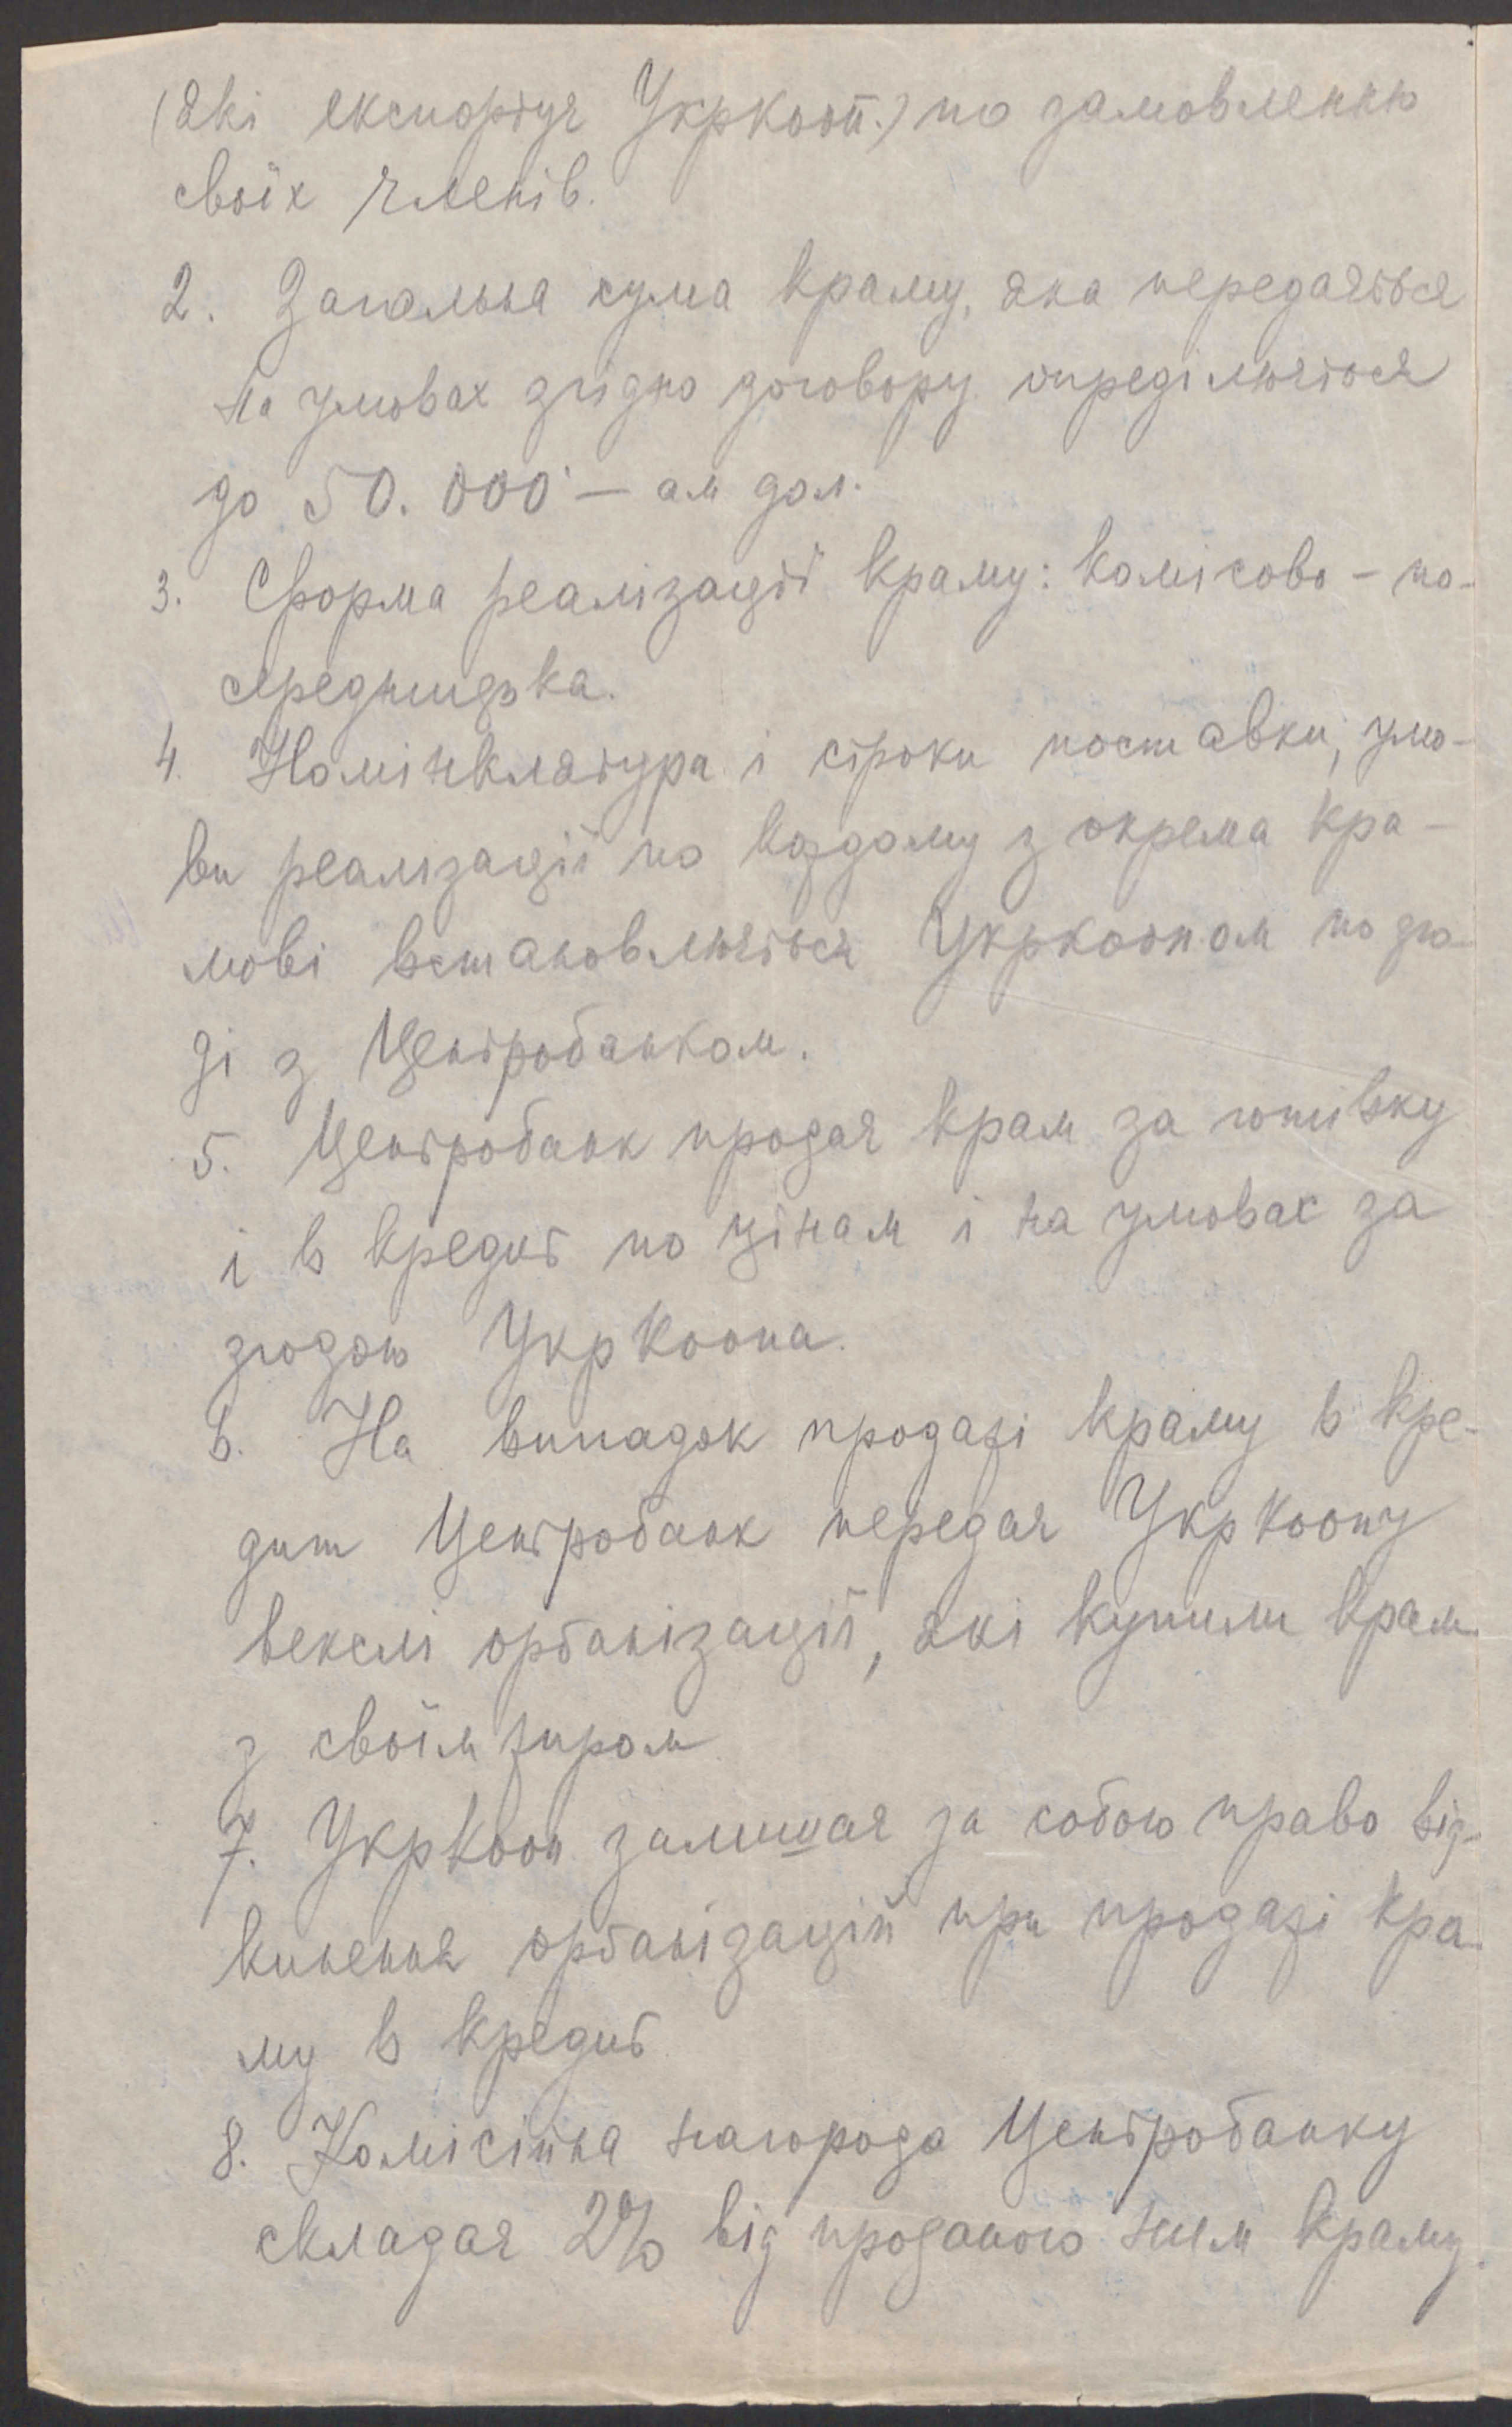 (які експортує УкрКооп.) по замовленню
своїх членів.
2. Загальна сума краму, яка передається
на умовах згідно договору опреділюється
до 50.000 — ам дол.
3. Форма реалізації краму: комісово - по-
средницька.
4. Номінклатура і строки поставки, умо-
ви реалізації по каждому зокрема кра-
мові встановлюється Укркоопом по зго-
ді з Центробанком.
5. Центробанк продає крам за готівку
і в кредит по цінам і на умовах за
згодою УкрКоопа.
6. На випадок продажі краму в кре-
дит Центробанк передає УкрКоопу
векслі орґанізації, які купили крам
з своїм жиром
7. УкрКооп залишає за собою право від-
кинення орґанізацій при продажі кра-
му в кредит
8. Комісійна нагорода Центробанку
складає 2% від проданого ним краму.